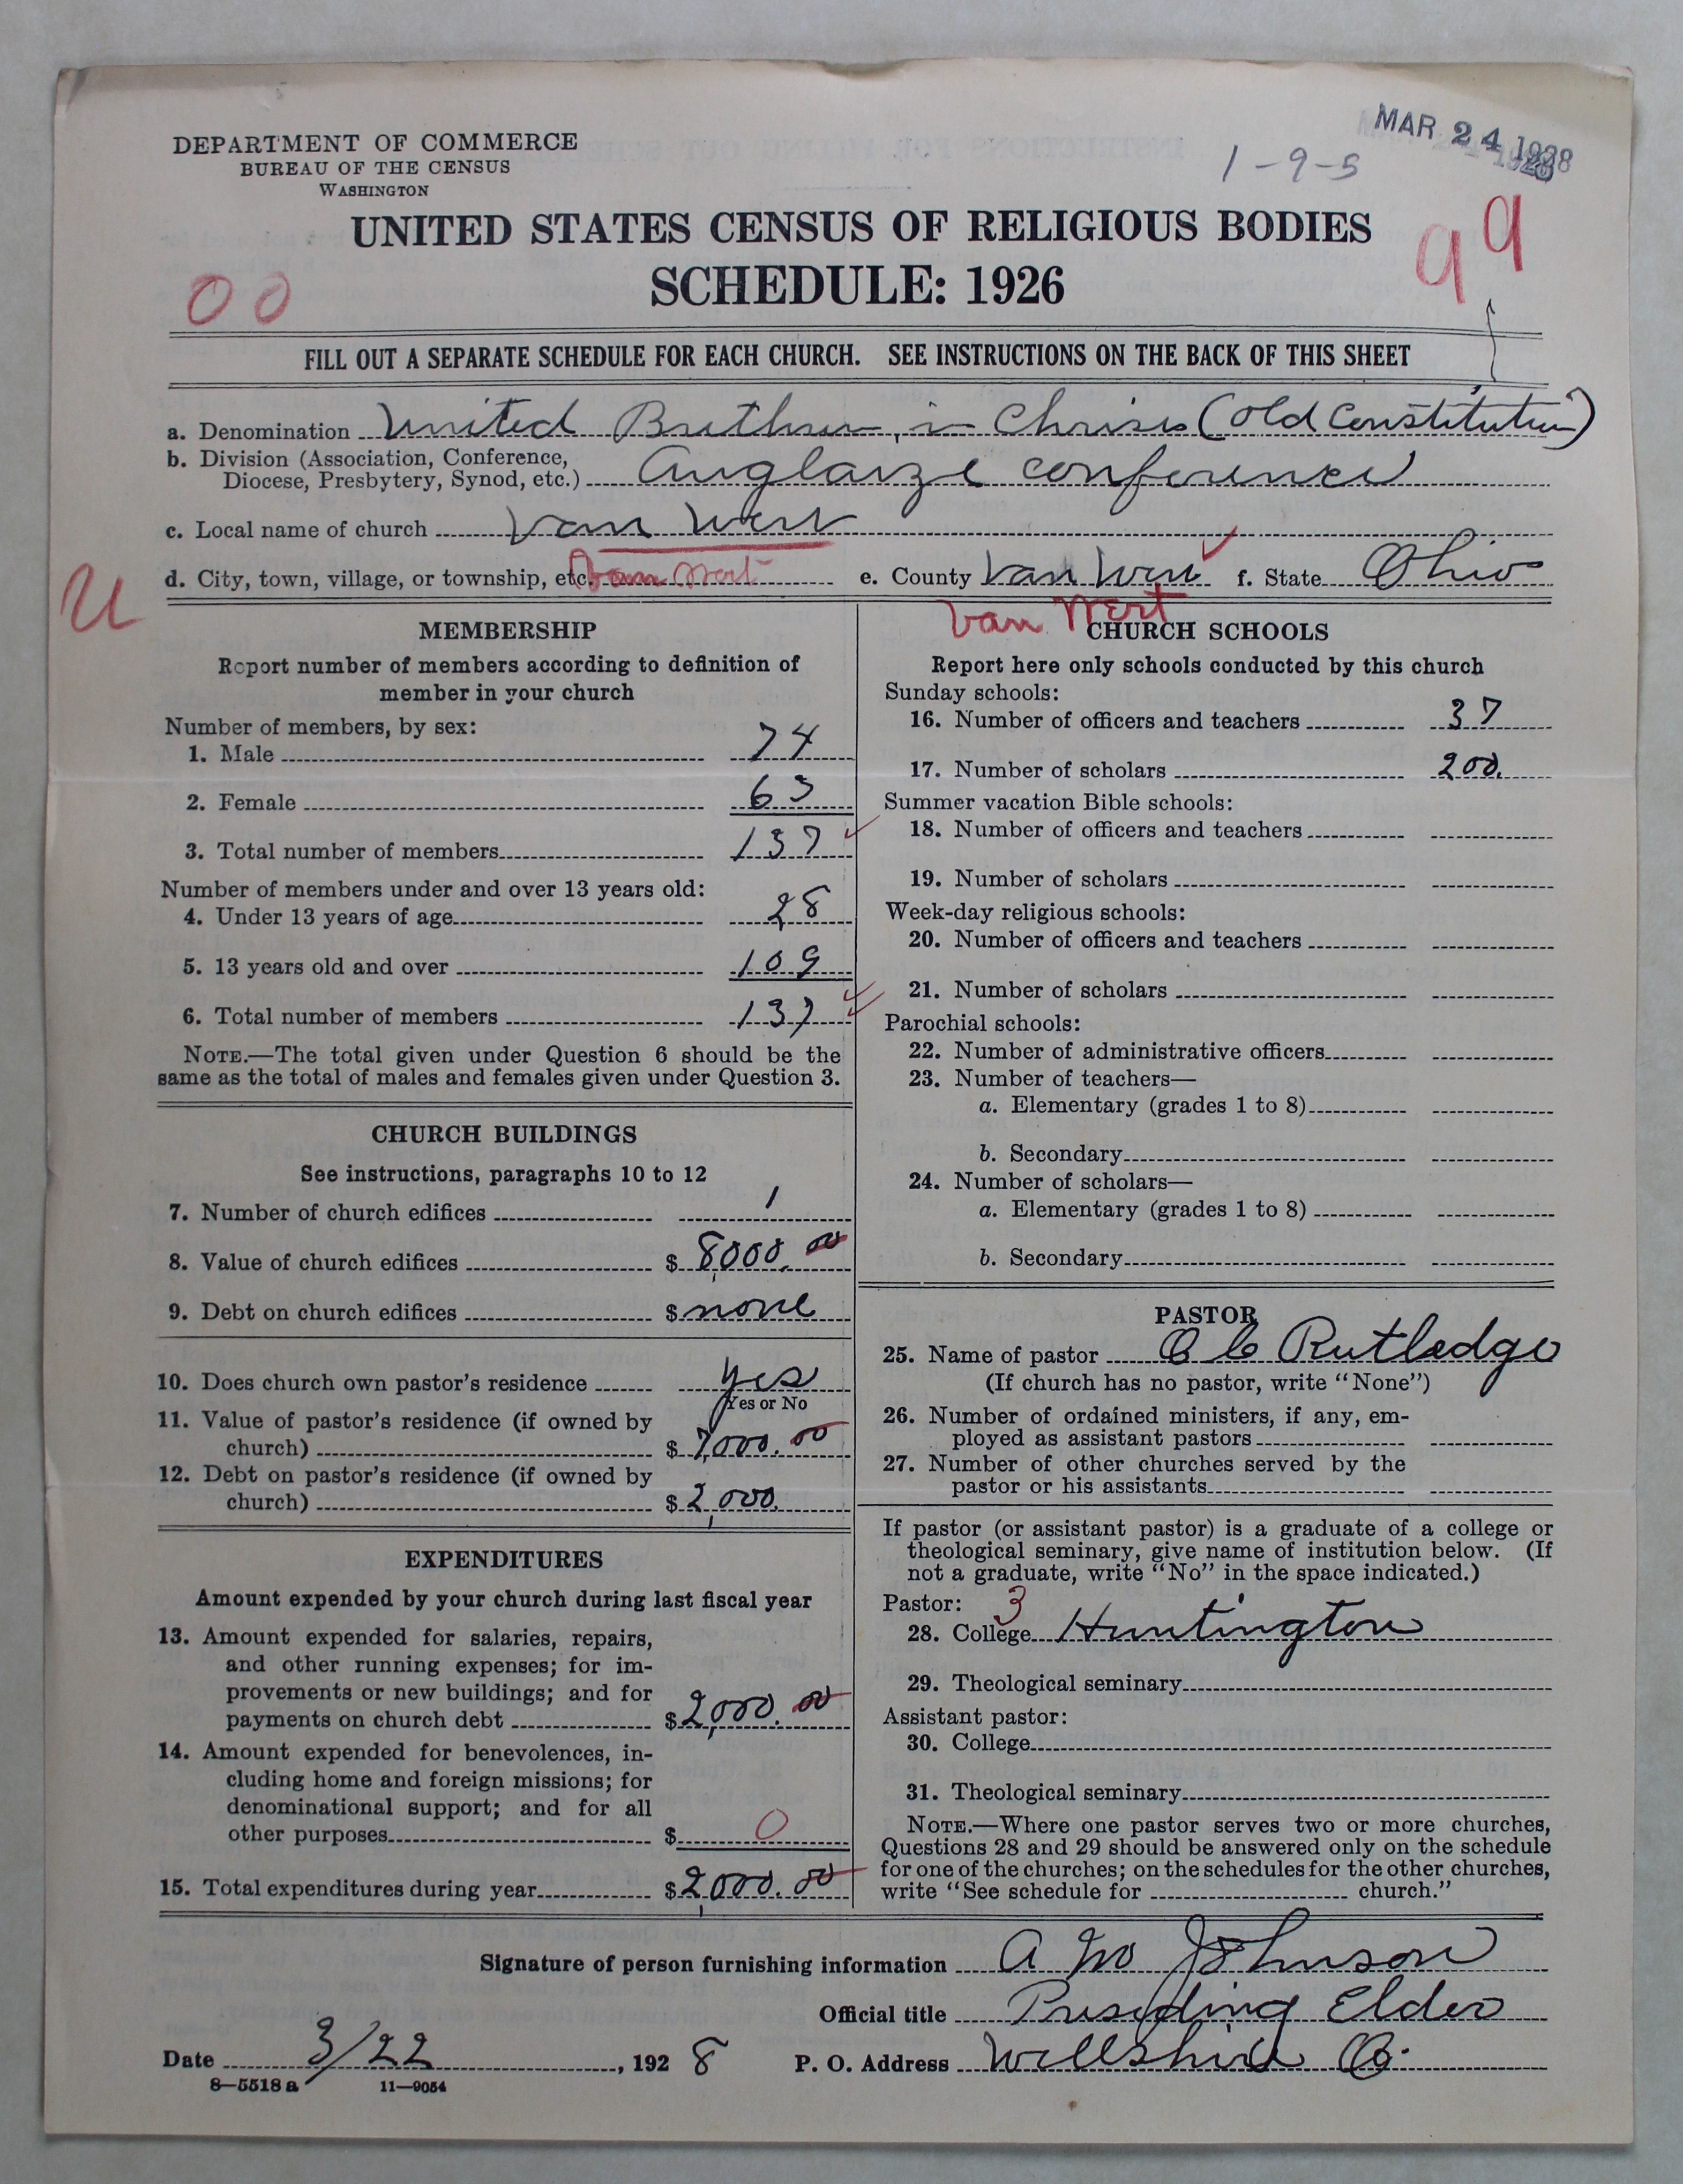 MAR 24 1928
1-9-5
DEPARTMENT OF COMMERCE
BUREAU OF THE CENSUS
WASHINGTON
UNITED STATES CENSUS OF RELIGIOUS BODIES
99
SCHEDULE: 1926
00
FILL OUT A SEPARATE SCHEDULE FOR EACH CHURCH. SEE INSTRUCTIONS ON THE BACK OF THIS SHEET
a. Denomination United Brethren in Christ (Old Constitution)
b. Division (Association, Conference,
Diocese, Presbytery, Synod, etc.) Auglaize conference
c. Local name of church Van Wert
d. City, town, village, or township, etc. Van Wert e. County Van Wert f. State Ohio
U
Van Wert
MEMBERSHIP
Report number of members according to definition of
member in your church
Number of members, by sex:
1. Male 74
2. Female 63
3. Total number of members 137
Number of members under and over 13 years old:
4. Under 13 years of age 28
5. 13 years old and over 109
6. Total number of members 137
NOTE.—The total given under Question 6 should be the
same as the total of males and females given under Question 3.
CHURCH BUILDINGS
See instructions, paragraphs 10 to 12
7. Number of church edifices 1
8. Value of church edifices $ 8,000.00
9. Debt on church edifices $ none
10. Does church own pastor's residence yes
Yes or No
11. Value of pastor's residence (if owned by
church) $ 7,000.00
12. Debt on pastor's residence (if owned by
church) $ 2,000.
EXPENDITURES
Amount expended by your church during last fiscal year
13. Amount expended for salaries, repairs,
and other running expenses; for im-
provements or new buildings; and for
payments on church debt $ 2,000.00
14. Amount expended for benevolences, in-
cluding home and foreign missions; for
denominational support; and for all
other purposes $ 0
15. Total expenditures during year $ 2,000.00
CHURCH SCHOOLS
Report here only schools conducted by this church
Sunday schools:
16. Number of officers and teachers 37
17. Number of scholars 200.
Summer vacation Bible schools:
18. Number of officers and teachers
19. Number of scholars
Week-day religious schools:
20. Number of officers and teachers
21. Number of scholars
Parochial schools:
22. Number of administrative officers
23. Number of teachers—
a. Elementary (grades 1 to 8)
b. Secondary
24. Number of scholars—
a. Elementary (grades 1 to 8)
b. Secondary
PASTOR
25. Name of pastor O C Rutledge
(If church has no pastor, write "None")
26. Number of ordained ministers, if any, em-
ployed as assistant pastors
27. Number of other churches served by the
pastor or his assistants
If pastor (or assistant pastor) is a graduate of a college or
theological seminary, give name of institution below. (If
not a graduate, write "No" in the space indicated.)
Pastor: 3
28. College Huntington
29. Theological seminary
Assistant pastor:
30. College
31. Theological seminary
NOTE.—Where one pastor serves two or more churches,
Questions 28 and 29 should be answered only on the schedule
for one of the churches; on the schedules for the other churches,
write "See schedule for church."
Signature of person furnishing information A M Johnson
Official title Presiding Elder
Date 3/22, 1928 P. O. Address Willshire O.
8—5518 a 11—9054